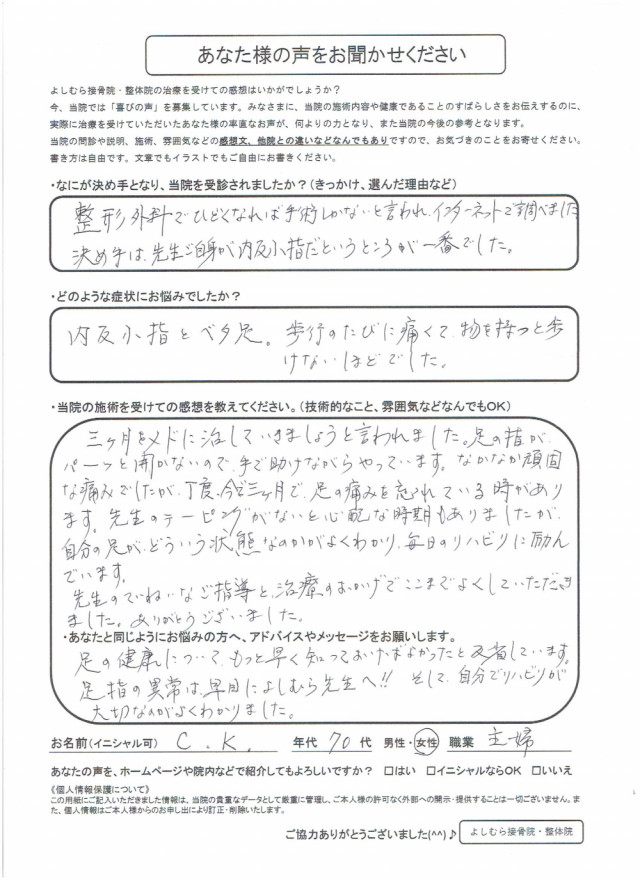 あなた様の声をお聞かせください
よしむら接骨院・整体院の治療を受けての感想はいかがでしょうか？
今、当院では「喜びの声」を募集しています。みなさまに、当院の施術内容や健康であることのすばらしさをお伝えするのに、
実際に治療を受けていただいたあなた様の率直なお声が、何よりの力となり、また当院の今後の参考となります。
当院の問診や説明、施術、雰囲気などの感想文、他院との違いなどなんでもありですので、お気づきのことをお寄せください。
書き方は自由です。文章でもイラストでもご自由にお書きください。
・なにが決め手となり、当院を受診されましたか？（きっかけ、選んだ理由など）
整形外科でひどくなれば手術しかないと言われ、インターネットで調べました
決め手は、先生ご自身が内反小指だというところが一番でした。
・どのような症状にお悩みでしたか？
内反小指とベタ足。歩行のたびに痛くて、物を持つと歩
けないほどでした。
・当院の施術を受けての感想を教えてください。（技術的なこと、雰囲気などなんでもOK）
三ヶ月をメドに治していきましょうと言われました。足の指が、
パーッと開かないので、手で助けながらやっています。なかなか頑固
な痛みでしたが、丁度、今で三ヶ月で、足の痛みを忘れている時があり
ます。先生のテーピングがないと心配な時期もありましたが、
自分の足が、どういう状態なのかがよくわかり、毎日のリハビリに励ん
でいます。
先生のていねいなご指導と、治療のおかげでここまでよくしていただき
ました。ありがとうございました。
・あなたと同じようにお悩みの方へ、アドバイスやメッセージをお願いします。
足の健康について、もっと早く知っておけばよかったと反省しています。
足指の異常は、早目によしむら先生へ!! そして、自分でリハビリが
大切なのがよくわかりました。
お名前（イニシャル可） C.K. 年代 70代 男性・女性 職業 主婦
あなたの声を、ホームページや院内などで紹介してもよろしいですか？ □はい □イニシャルならOK □いいえ
《個人情報保護について》
この用紙にご記入いただきました情報は、当院の貴重なデータとして厳重に管理し、ご本人様の許可なく外部への開示・提供することは一切ございません。ま
た、個人情報はご本人様からのお申し出により訂正・削除いたします。
ご協力ありがとうございました(^^)♪ よしむら接骨院・整体院